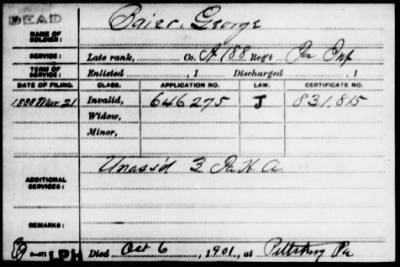 DEAD
Baier, George
NAME OF SOLDIER:
SERVICE: Late rank, Co. A 188 Reg't Pa Inf
TERM OF SERVICE: Enlisted , 1 Discharged , 1
DATE OF FILING. CLASS. APPLICATION NO. LAW. CERTIFICATE NO.
1888 Mar. 21 Invalid, 646275 J 831,815
Widow,
Minor,
ADDITIONAL SERVICES: Unass'd 3 Pa H A
REMARKS:
LPH Died Oct 6, 1901, at Pittsburg Pa